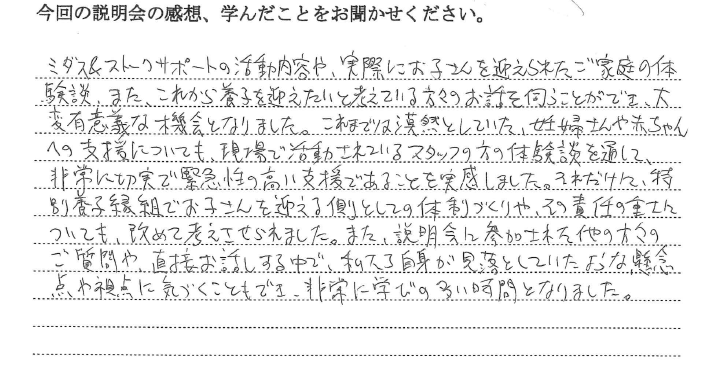 今回の説明会の感想、学んだことをお聞かせください。
ミダス&ストークサポートの活動内容や、実際にお子さんを迎えられたご家庭の体
験談、また、これから養子を迎えたいと考えている方々のお話を伺うことができ、大
変有意義な機会となりました。これまでは漠然としていた、妊婦さんや赤ちゃん
への支援についても、現場で活動されているスタッフの方の体験談を通して、
非常に切実で緊急性の高い支援であることを実感しました。それだけに、特
別養子縁組でお子さんを迎える側としての体制づくりや、その責任の重さに
ついても、改めて考えさせられました。また、説明会に参加された他の方々の
ご質問や、直接お話しする中で、私たち自身が見落としていたような懸念
点や視点に気づくこともでき、非常に学びの多い時間となりました。